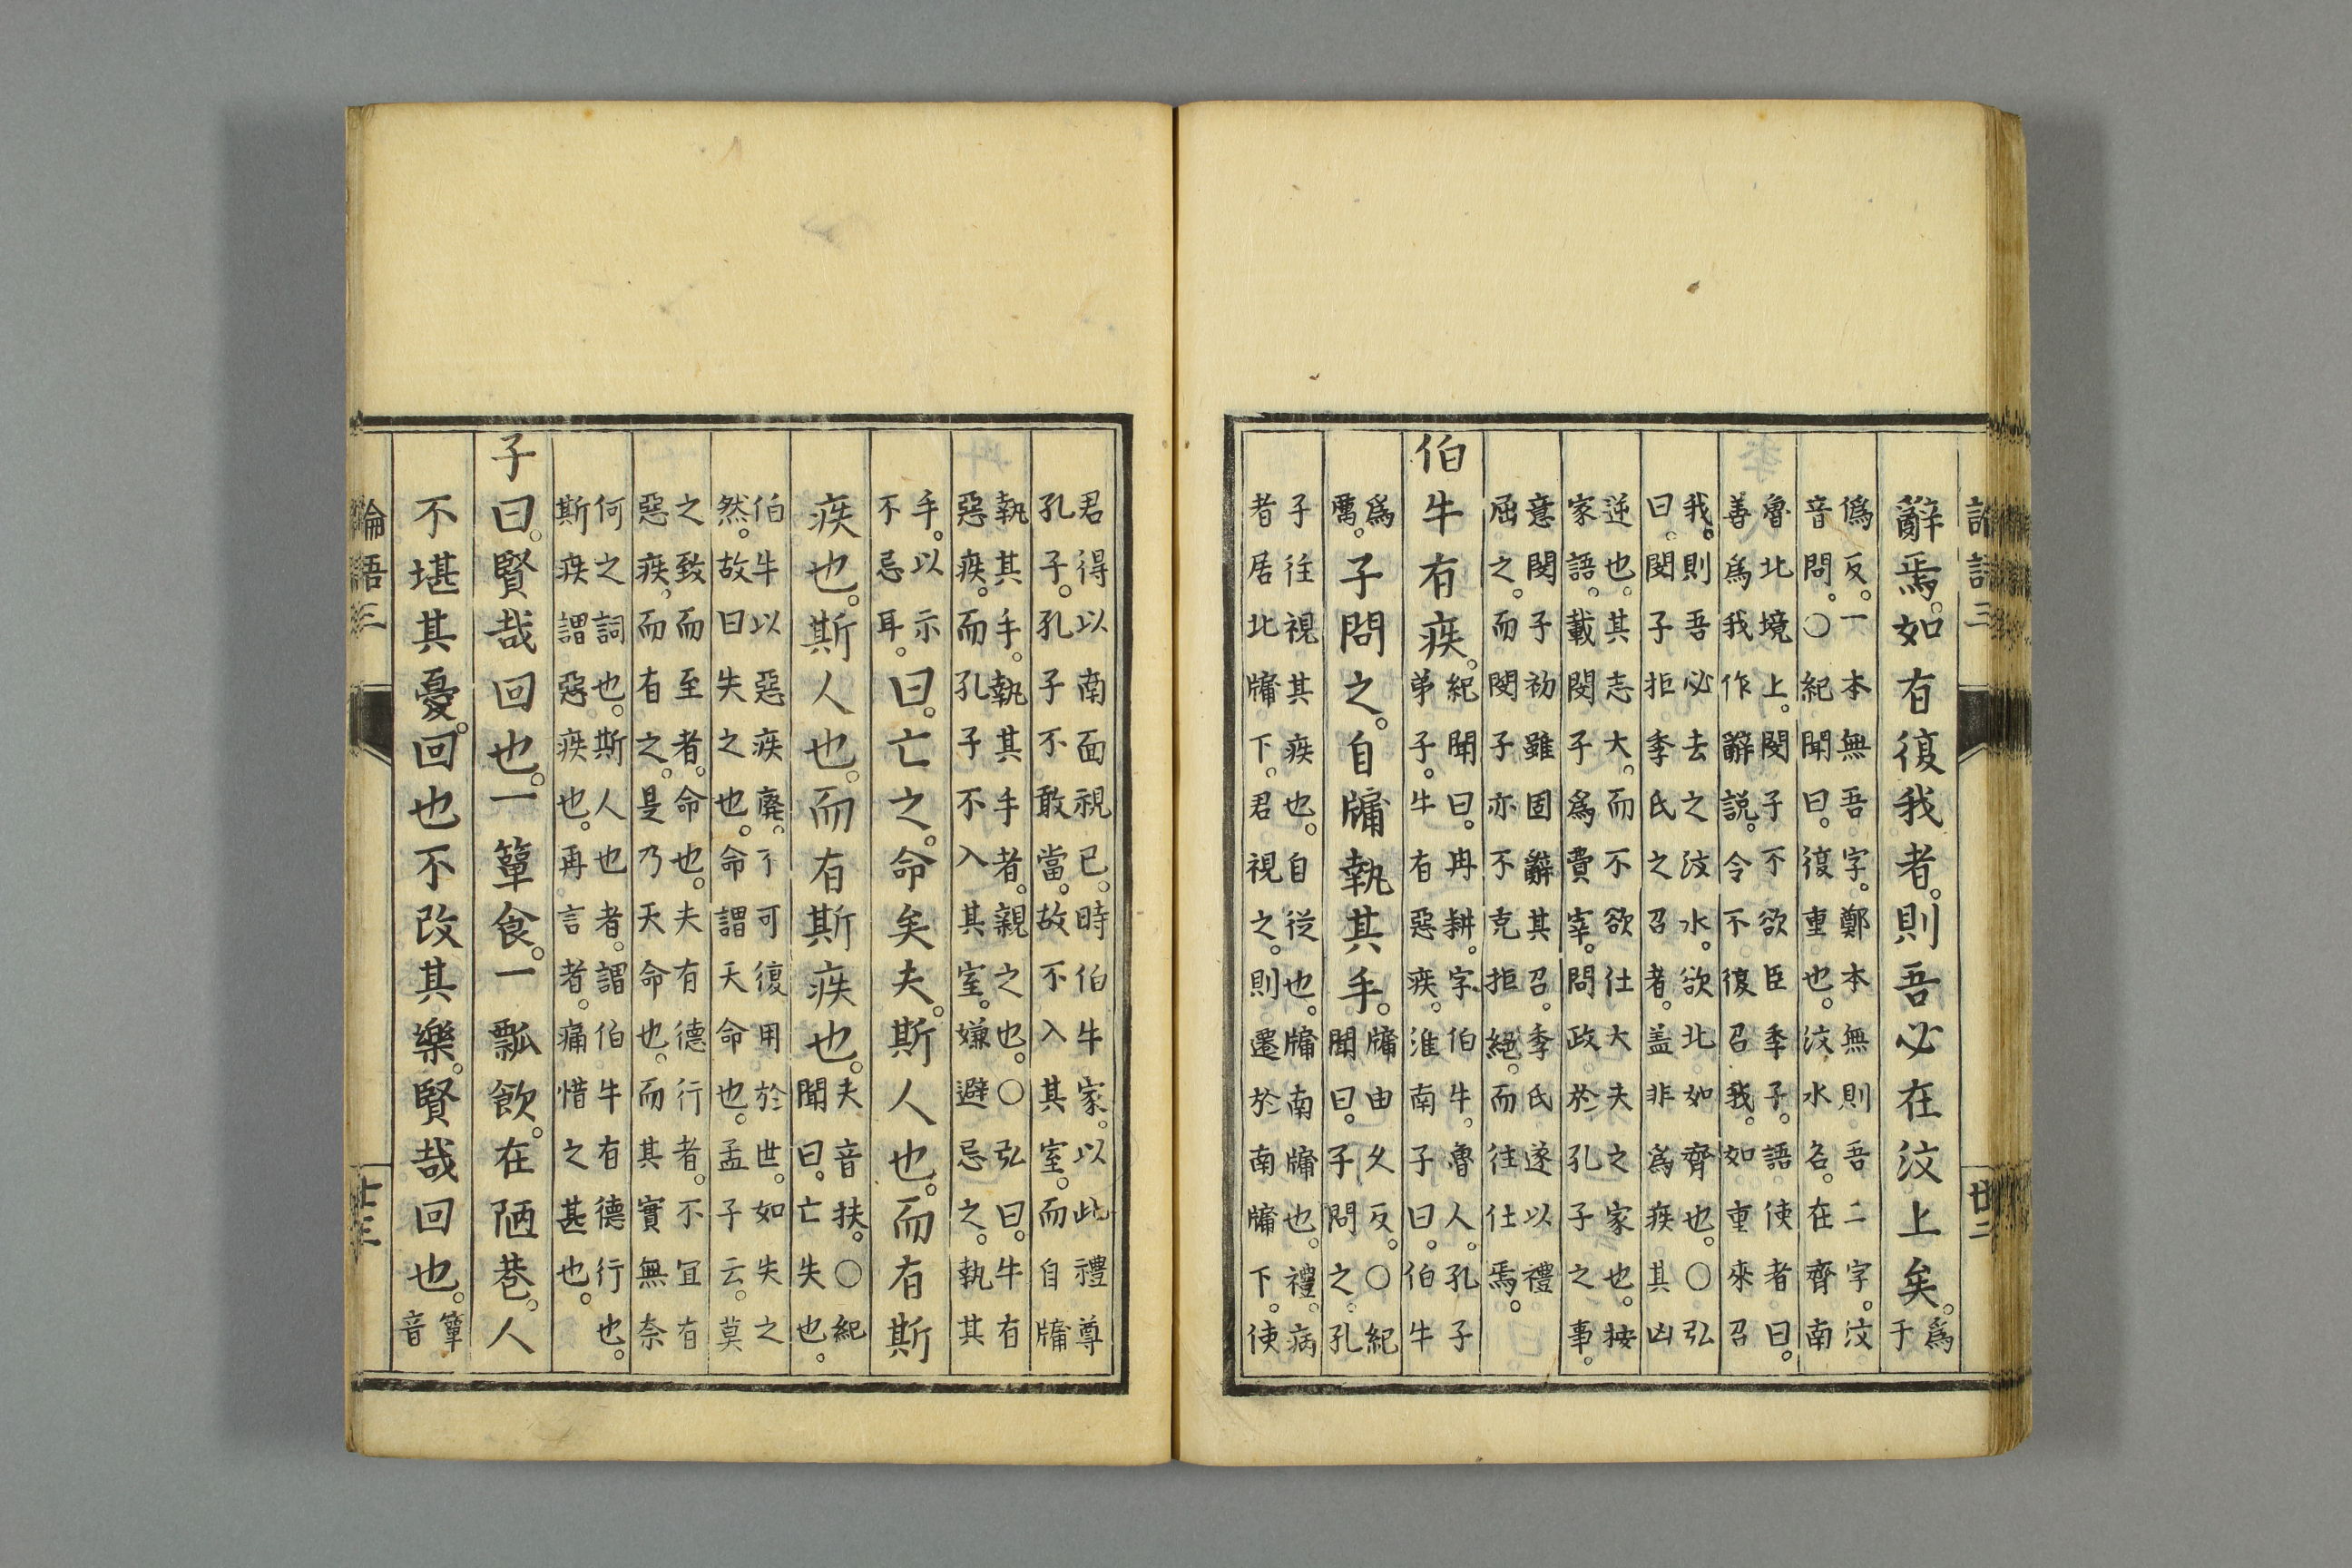 辭焉。如有復我者。則吾必在汶上矣。爲
于
僞反。一本無吾字。鄭本無則吾二字。汶
音問。○紀聞曰。復重也。汶水名。在齊南
魯北境上。閔子不欲臣季子。語使者曰。
善爲我作辭説。令不復召我。如重來召
我。則吾必去之汶水。欲北如齊也。○弘
曰。閔子拒季氏之召者。盖非爲疾其凶
逆也。其志大。而不欲仕大夫之家也。按
家語。載閔子爲費宰。問政於孔子之事。
意閔子初雖固辭其召。季氏遂以禮
屈之。而閔子亦不克拒絕。而往仕焉。
伯牛有疾。紀聞曰。冉耕。字伯牛。魯人。孔子
弟子。牛有惡疾。淮南子曰。伯牛
爲
厲。子問之。自牖執其手。牖由久反。○紀
聞曰。子問之。孔
子往視其疾也。自從也。牖南牖也。禮。病
者居北牖下。君視之。則遷於南牖下。使
君得以南面視已。時伯牛家。以此禮尊
孔子。孔子不敢當。故不入其室。而自牖
執其手。執其手者。親之也。○弘曰。牛有
惡疾。而孔子不入其室。嫌避忌之。執其
手。以示
不忌耳。曰。亡之。命矣夫。斯人也。而有斯
疾也。斯人也。而有斯疾也。夫音扶。○紀
聞曰。亡失也。
伯牛以惡疾廢。不可復用於世。如失之
然。故曰失之也。命謂天命也。孟子云。莫
之致而至者。命也。夫有德行者。不宜有
惡疾。而有之。是乃天命也。而其實無奈
何之詞也。斯人也者。謂伯牛有德行也。
斯疾謂惡疾也。再言者。痛惜之甚也。
子曰。賢哉回也。一簞食。一瓢飲。在陋巷。人
不堪其憂。回也不改其樂。賢哉回也。簞
音
論語三